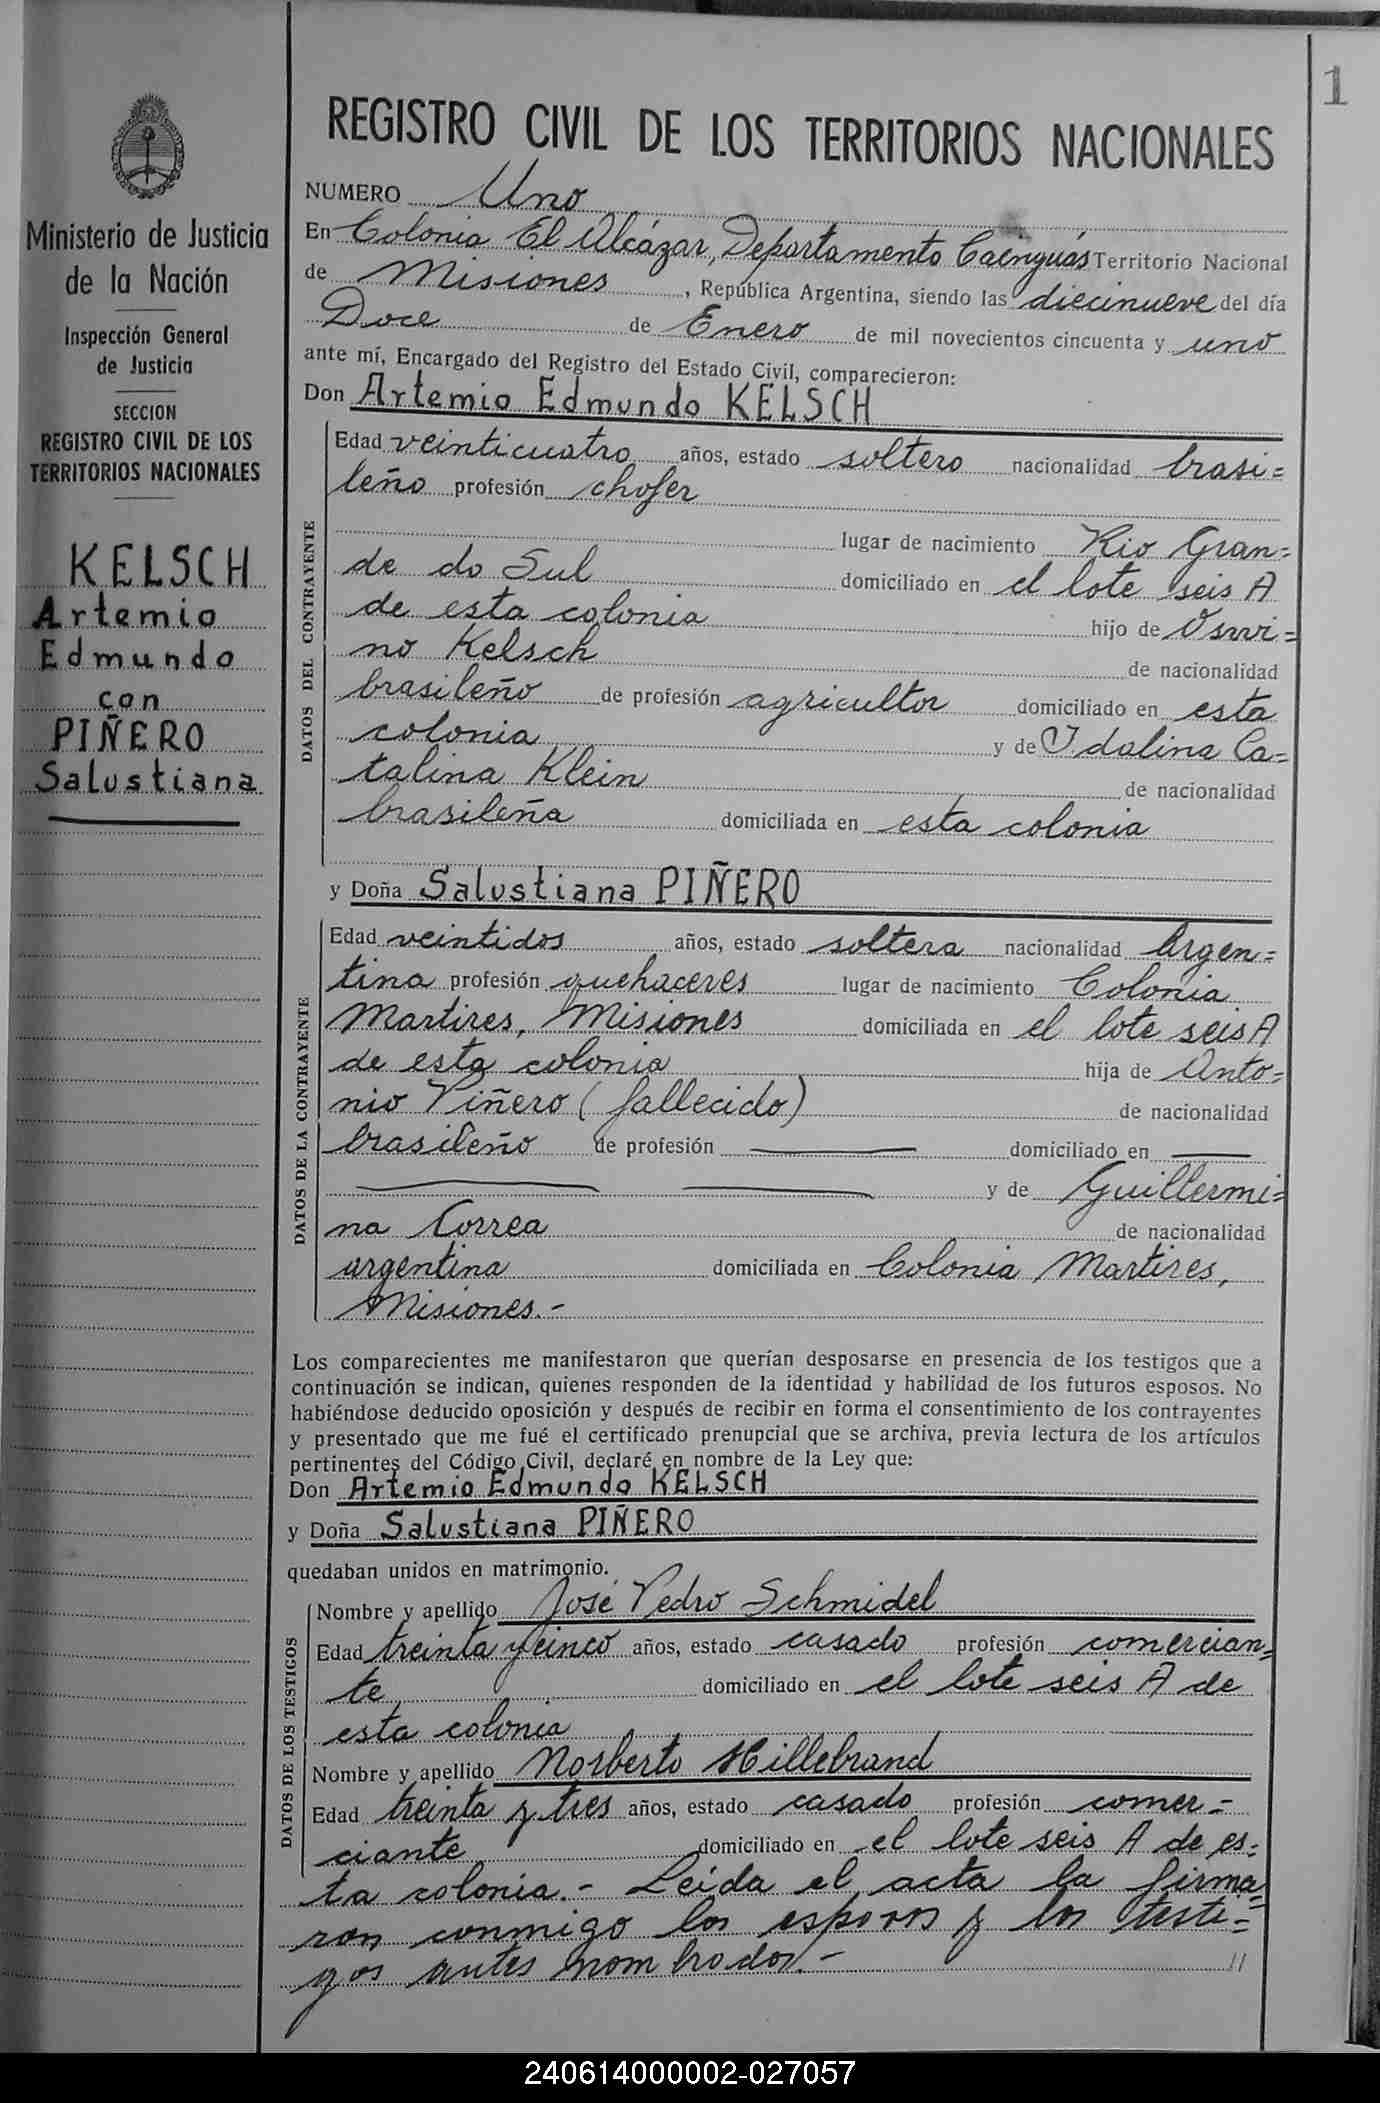 1
Ministerio de Justicia
de la Nación
Inspección General
de Justicia
SECCION
REGISTRO CIVIL DE LOS
TERRITORIOS NACIONALES
KELSCH
Artemio
Edmundo
con
PIÑERO
Salustiana
REGISTRO CIVIL DE LOS TERRITORIOS NACIONALES
NUMERO Uno
En Colonia El Alcázar, Departamento Cainguás Territorio Nacional
de Misiones, República Argentina, siendo las diecinueve del día
Doce de Enero de mil novecientos cincuenta y uno
ante mí, Encargado del Registro del Estado Civil, comparecieron:
Don Artemio Edmundo KELSCH
DATOS DEL CONTRAYENTE
Edad veinticuatro años, estado soltero nacionalidad brasi=
leño profesión chofer
lugar de nacimiento Rio Gran=
de do Sul domiciliado en el lote seis A
de esta colonia hijo de Oswi=
no Kelsch de nacionalidad
brasileño de profesión agricultor domiciliado en esta
colonia y de Idalina Ca=
talina Klein de nacionalidad
brasileña domiciliada en esta colonia
y Doña Salustiana PIÑERO
DATOS DE LA CONTRAYENTE
Edad veintidos años, estado soltera nacionalidad Argen=
tina profesión quehaceres lugar de nacimiento Colonia
Martires, Misiones domiciliada en el lote seis A
de esta colonia hija de Anto=
nio Piñero (fallecido) de nacionalidad
brasileño de profesión —— domiciliado en ——
—— —— y de Guillermi=
na Correa de nacionalidad
argentina domiciliada en Colonia Martires,
Misiones.-
Los comparecientes me manifestaron que querían desposarse en presencia de los testigos que a
continuación se indican, quienes responden de la identidad y habilidad de los futuros esposos. No
habiéndose deducido oposición y después de recibir en forma el consentimiento de los contrayentes
y presentado que me fué el certificado prenupcial que se archiva, previa lectura de los artículos
pertinentes del Código Civil, declaré en nombre de la Ley que:
Don Artemio Edmundo KELSCH
y Doña Salustiana PIÑERO
quedaban unidos en matrimonio.
DATOS DE LOS TESTIGOS
Nombre y apellido José Pedro Schmidel
Edad treinta y cinco años, estado casado profesión comercian=
te domiciliado en el lote seis A de
esta colonia
Nombre y apellido Norberto Hillebrand
Edad treinta y tres años, estado casado profesión comer-
ciante domiciliado en el lote seis A de es=
ta colonia.- Leída el acta la firma=
ron conmigo los esposos y los testi=
gos antes nombrados.- //
240614000002-027057